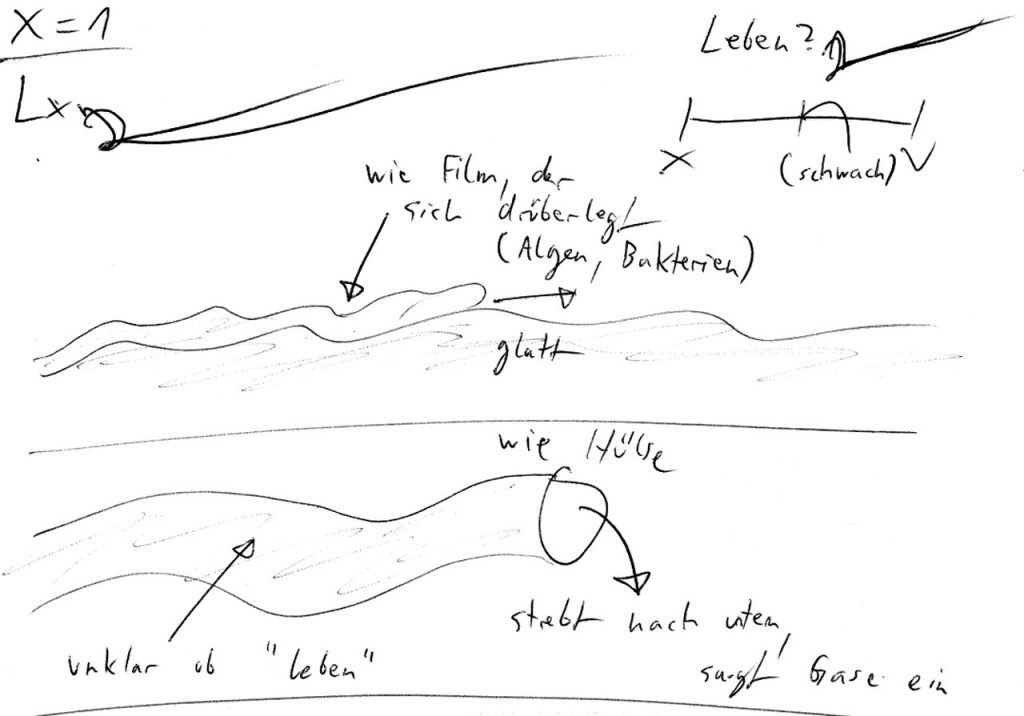 X = 1
Leben?
Lx
X
(schwach)
V
wie Film, der
sich drüberlegt
(Algen, Bakterien)
glatt
wie Hülse
strebt nach unten,
saugt Gase ein
unklar ob "Leben"